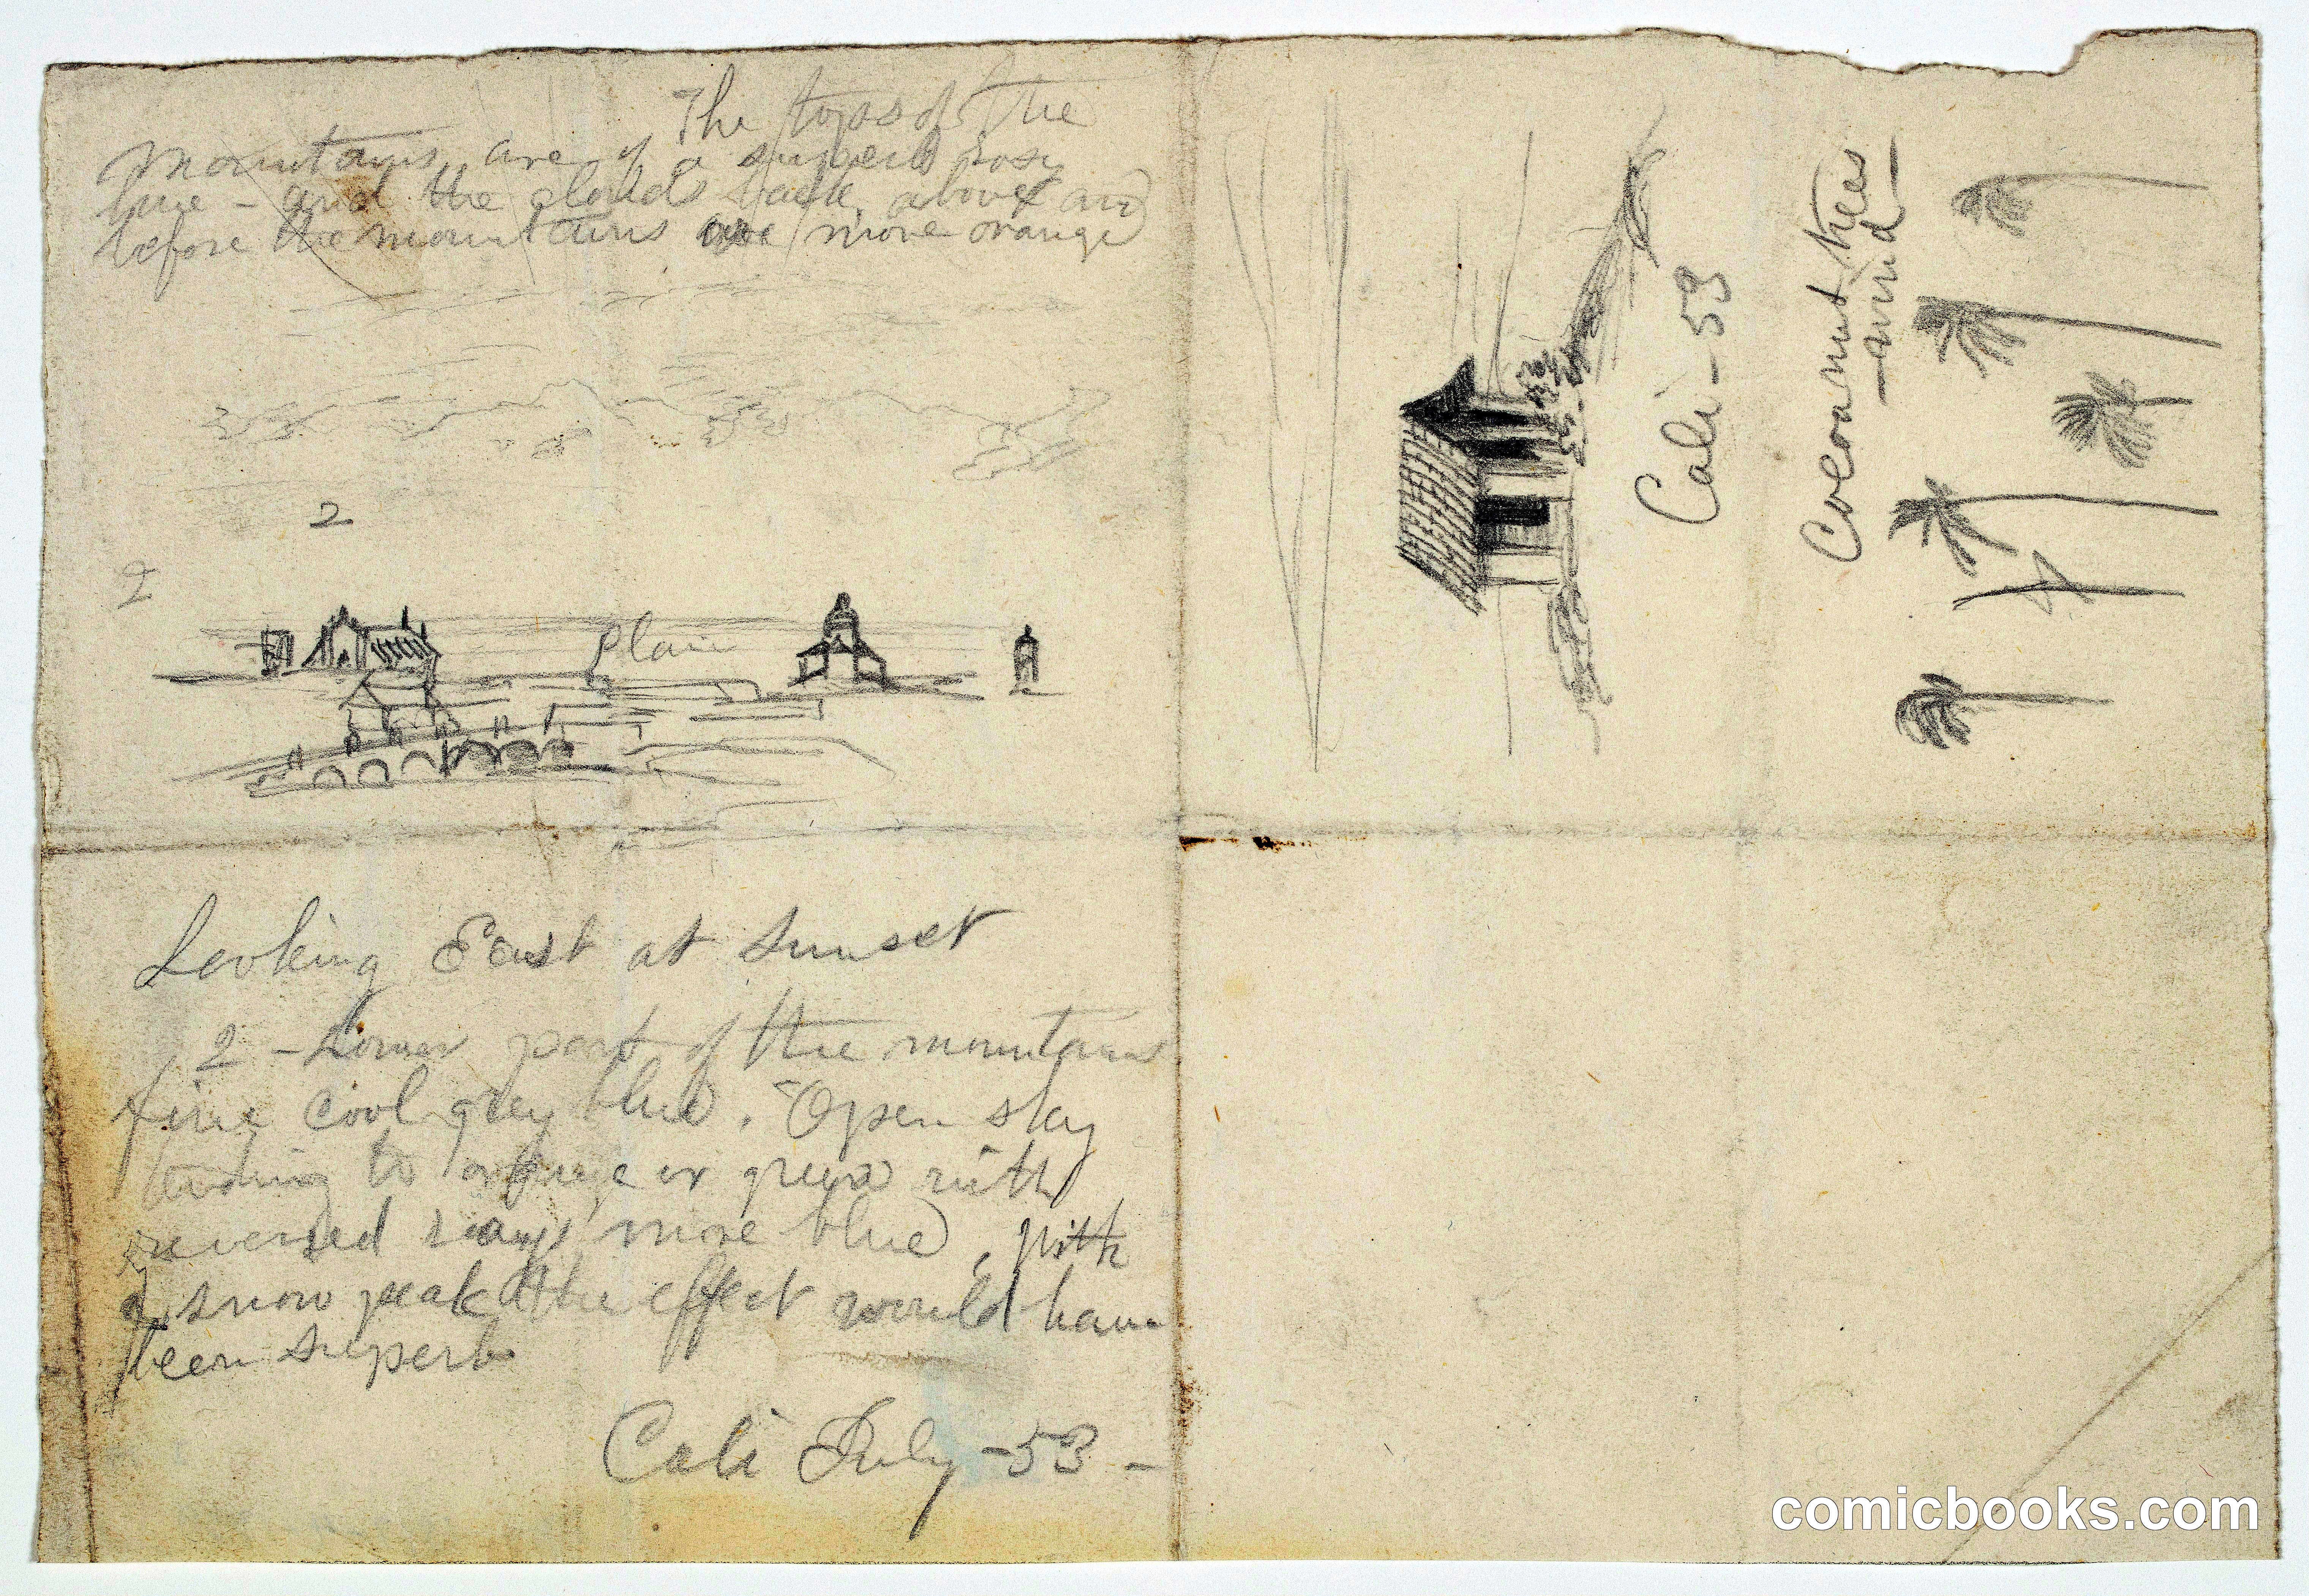 The tops of the
Mountains are of a superb rosy
hue - and the clouds back above and
before the mountains are more orange
2
2
Plain
Looking East at Sunset
2 - Lower part of the mountains
fine cool grey blue. Open sky
tending to orange or green with
reversed rays more blue, with
a snow peak the effect would have
been superb
Cali July - 53 -
Cali - 53
Cocoanut trees
- wind -
comicbooks.com